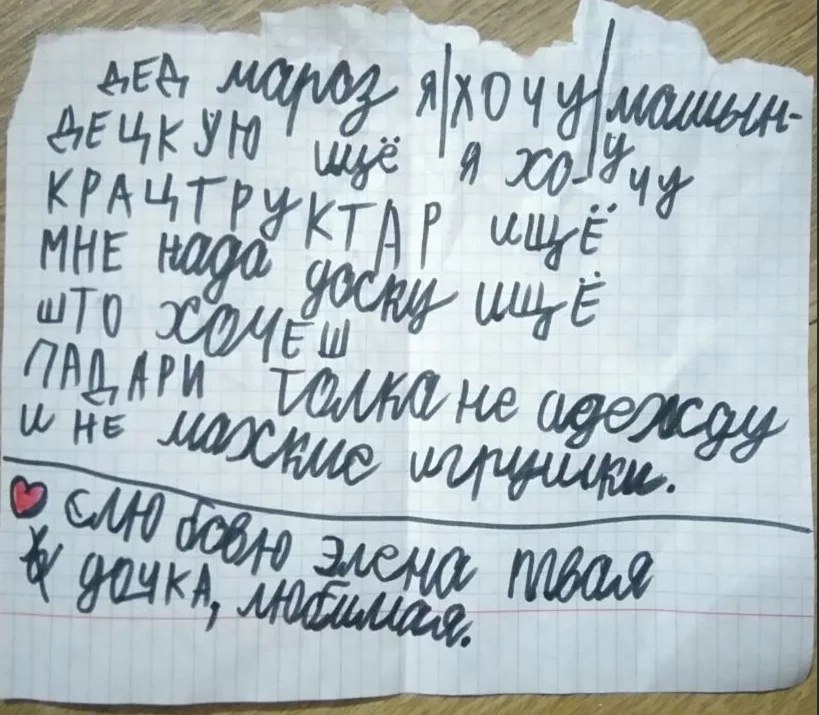 ДЕД мароз я хочу машын-
ДЕЦКУЮ ищё я хо- у чу
КРАЦТРУКТАР ищЁ
МНЕ нада доску ищЁ
што хочЕШ
ПАДАРИ толка не адежду
и НЕ махкие игрушки.
слюбовю элена твая
дочка, любимая.